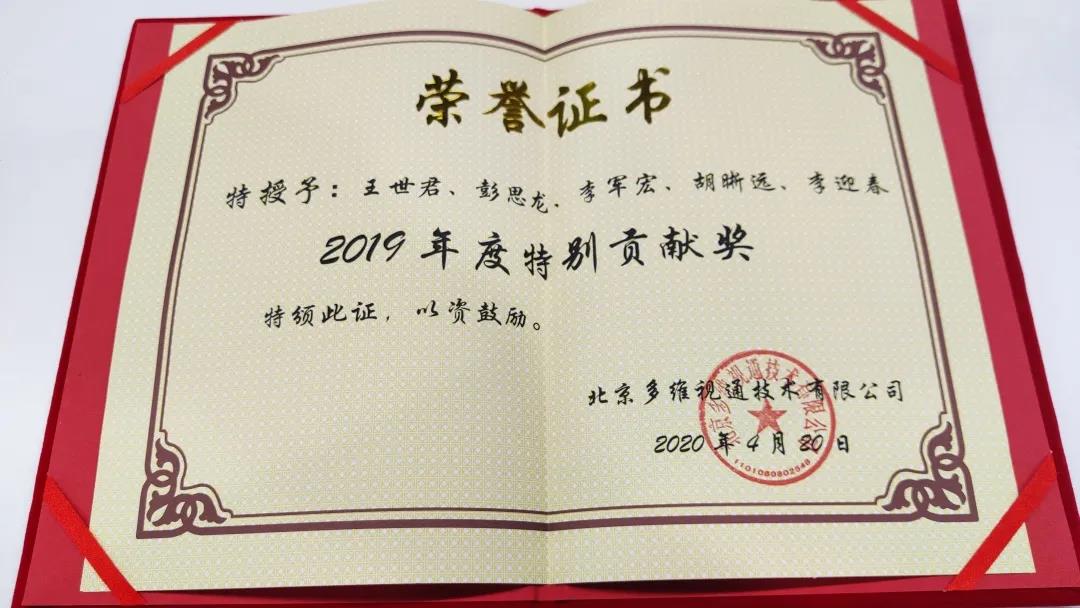 荣誉证书
特授予：王世君、彭思龙、李军宏、胡晰远、李迎春
2019年度特别贡献奖
特颁此证，以资鼓励。
北京多维视通技术有限公司
2020年4月20日
北京多维视通技术有限公司